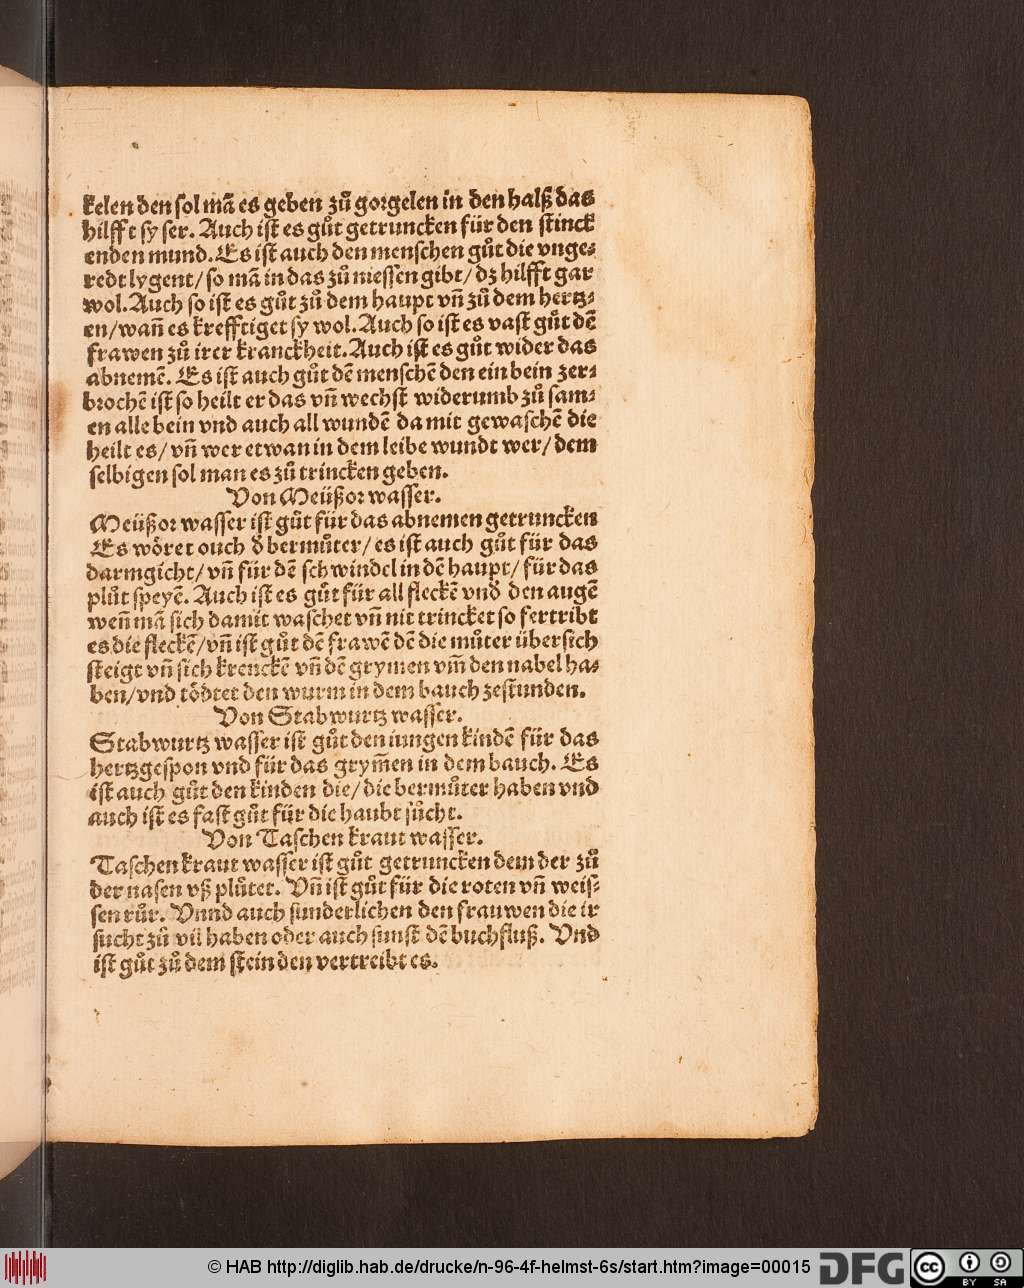 kelen den sol mã es geben zů gorgelen in den halß das
hilfft sy ser. Auch ist es gůt getruncken für den stinck
enden mund. Es ist auch den menschen gůt die vnge⸗
redt lygent/ so mã in das zů niessen gibt/ dz hilfft gar
wol. Auch so ist es gůt zů dem haupt vñ zů dem hertz⸗
en/ wañ es krefftiget sy wol. Auch so ist es vast gůt dẽ
frawen zů irer kranckheit. Auch ist es gůt wider das
abnemẽ. Es ist auch gůt dẽ menschẽ den ein bein zer⸗
brochẽ ist so heilt er das vñ wechst widerumb zů sam⸗
en alle bein vnd auch all wundẽ da mit gewaschẽ die
heilt es/ vñ wer etwan in dem leibe wundt wer/ dem
selbigen sol man es zů trincken geben.
Von Meüßor wasser.
Meüßor wasser ist gůt für das abnemen getruncken
Es wöret ouch d̕ bermůter/ es ist auch gůt für das
darmgicht/ vñ für dẽ schwindel in dẽ haupt/ für das
plůt speyẽ. Auch ist es gůt für all fleckẽ vnd den augẽ
weñ mã sich damit waschet vñ nit trincket so fertribt
es die fleckẽ/ vñ ist gůt dẽ frawẽ dẽ die můter übersich
steigt vñ sich krenckẽ vñ dẽ grymen vm̃ den nabel ha⸗
ben/ vnd tödtet den wurm in dem bauch zestunden.
Von Stabwurtz wasser.
Stabwurtz wasser ist gůt den iungen kindẽ für das
hertzgespon vnd für das grym̃en in dem bauch. Es
ist auch gůt den kinden die/ die bermůter haben vnd
auch ist es fast gůt für die haubt sůcht.
Von Taschen kraut wasser.
Taschen kraut wasser ist gůt getruncken dem der zů
der nasen vß plůtet. Vñ ist gůt für die roten vñ weis⸗
sen růr. Vnnd auch sunderlichen den frauwen die ir
sucht zů vil haben oder auch sunst dẽ buchfluß. Vnd
ist gůt zů dem stein den vertreibt es.
© HAB http://diglib.hab.de/drucke/n-96-4f-helmst-6s/start.htm?image=00015
DFG
cc
BY SA